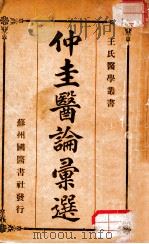 王氏醫學叢書
仲圭醫論彙選
蘇州國醫書社發行